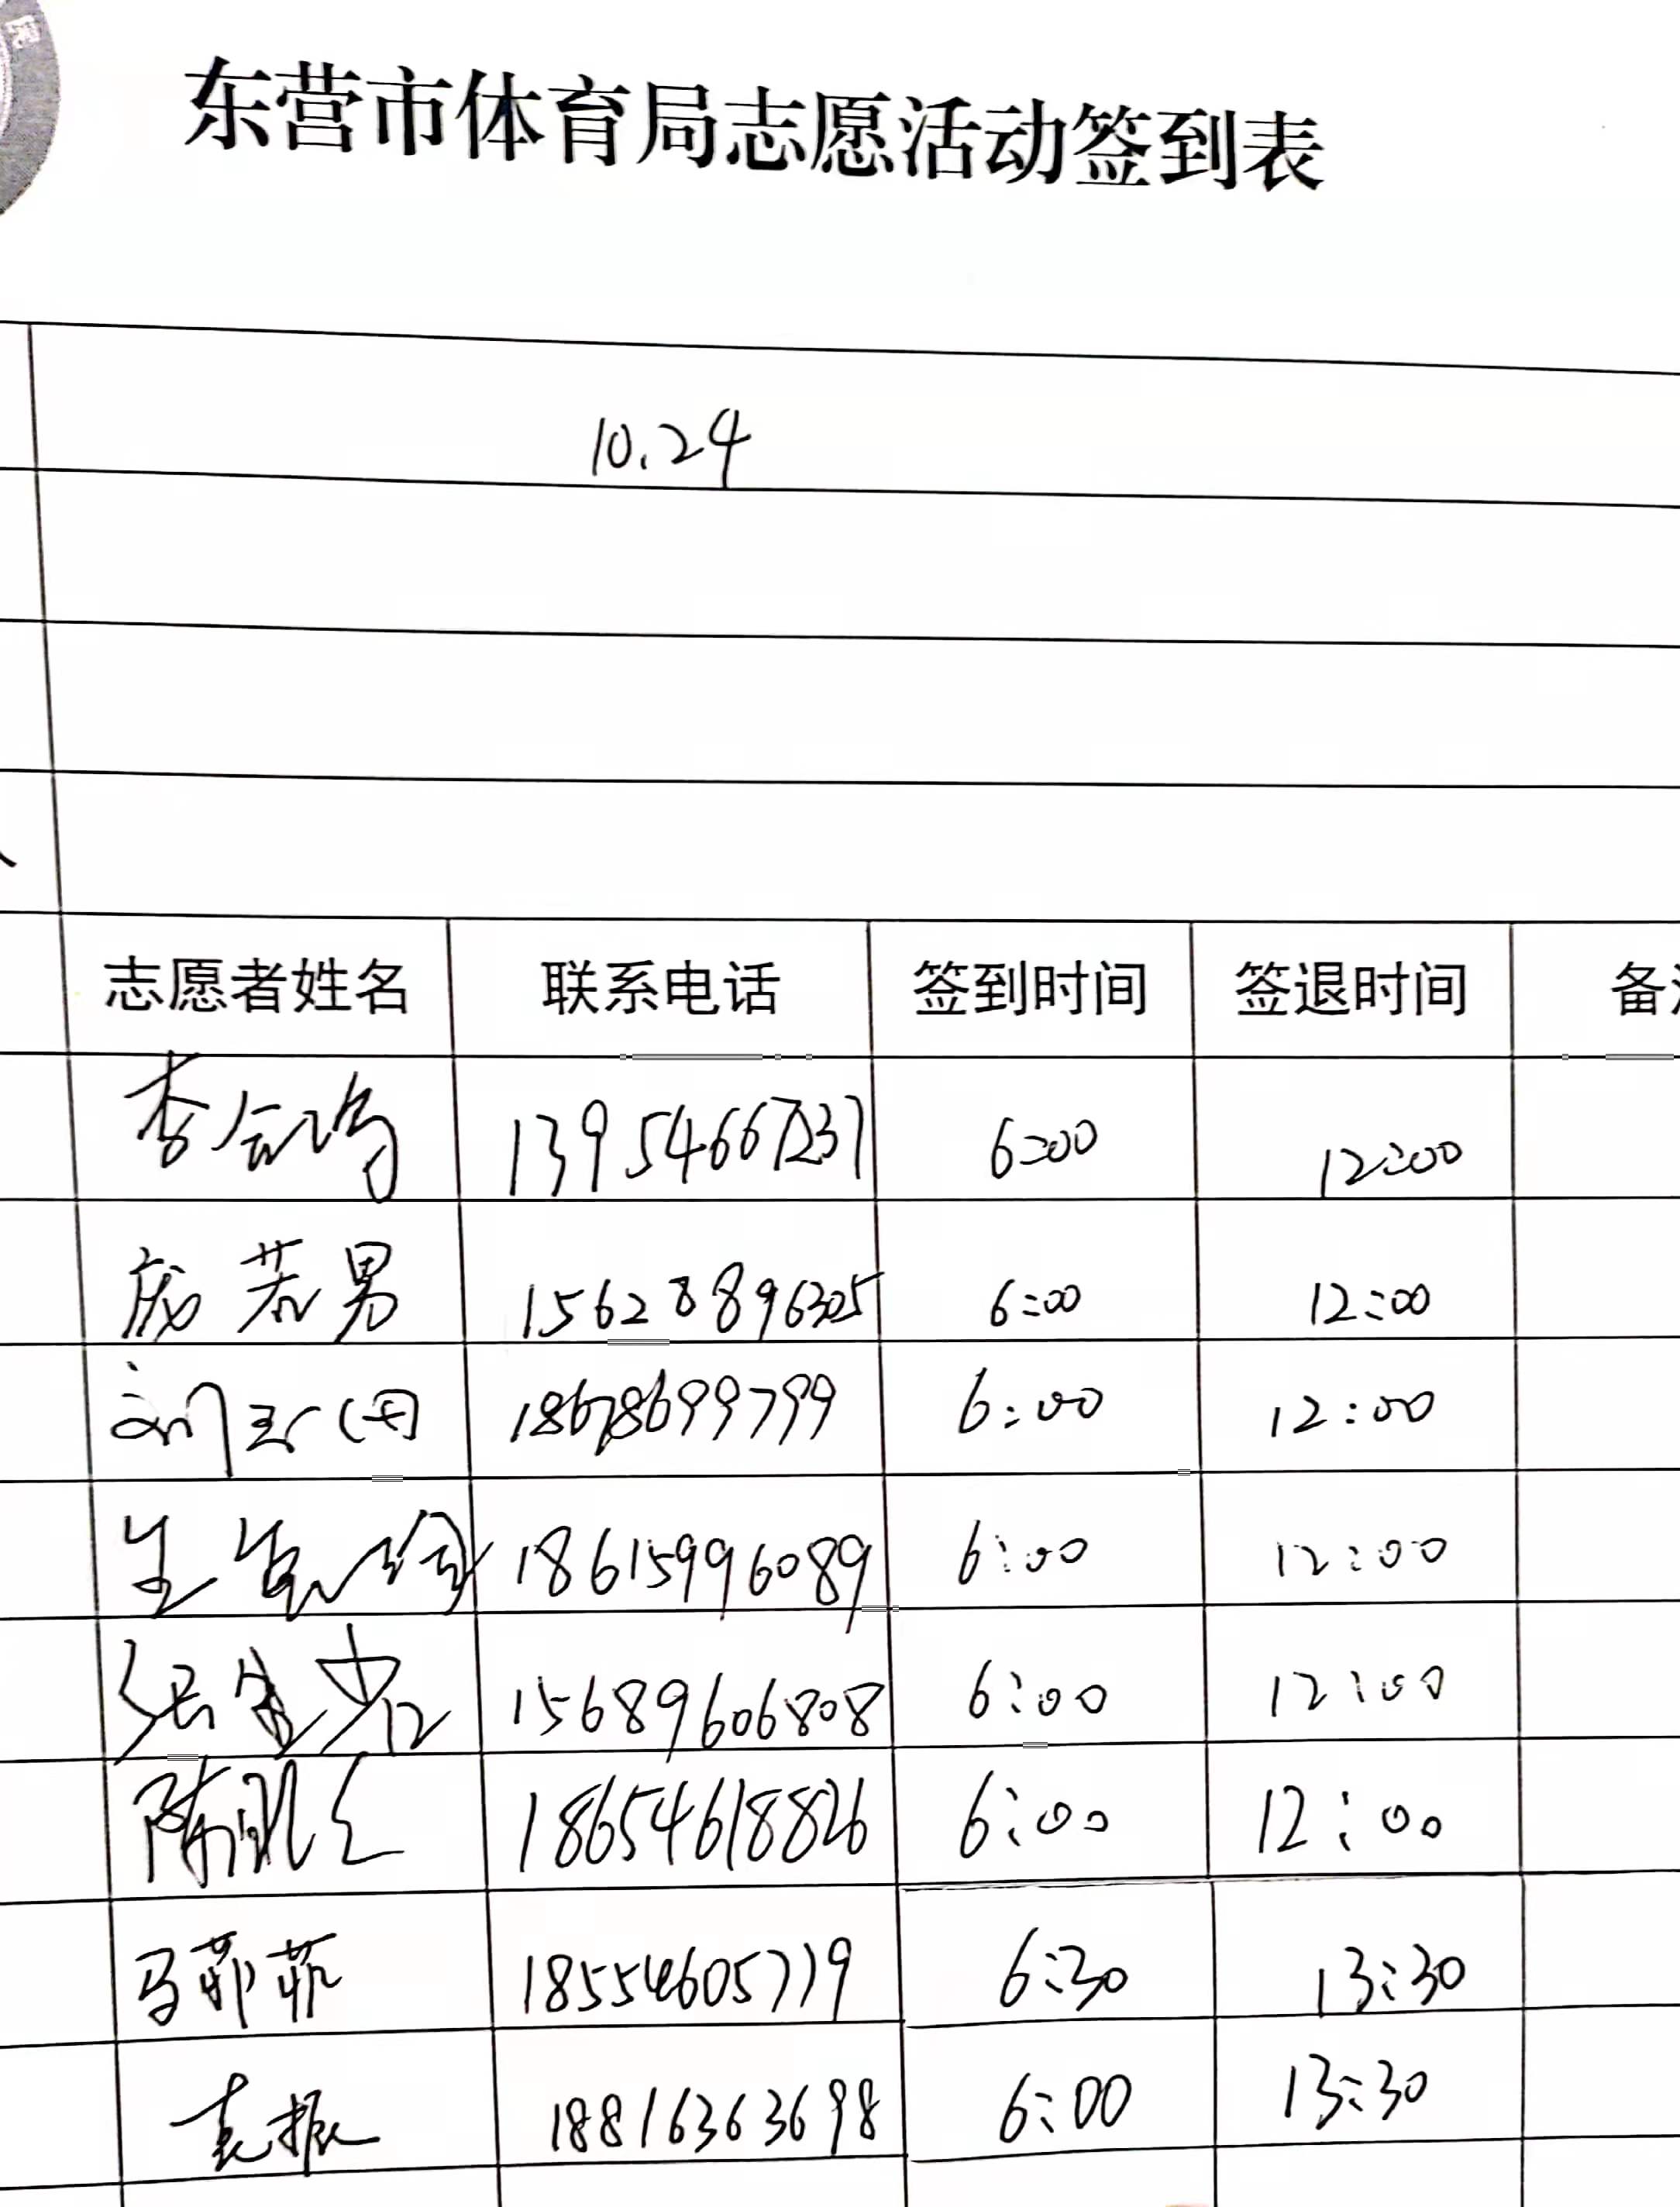 东营市体育局志愿活动签到表
10.24
志愿者姓名 联系电话 签到时间 签退时间 备
李 13954667237 6:00 12:00
庞若男 15628896305 6:00 12:00
刘 18678699799 6:00 12:00
18615996089 6:00 12:00
张 15689606808 6:00 12:00
陈 18654618826 6:00 12:00
马菲菲 18554605719 6:30 13:30
袁振 18816363698 6:00 13:30